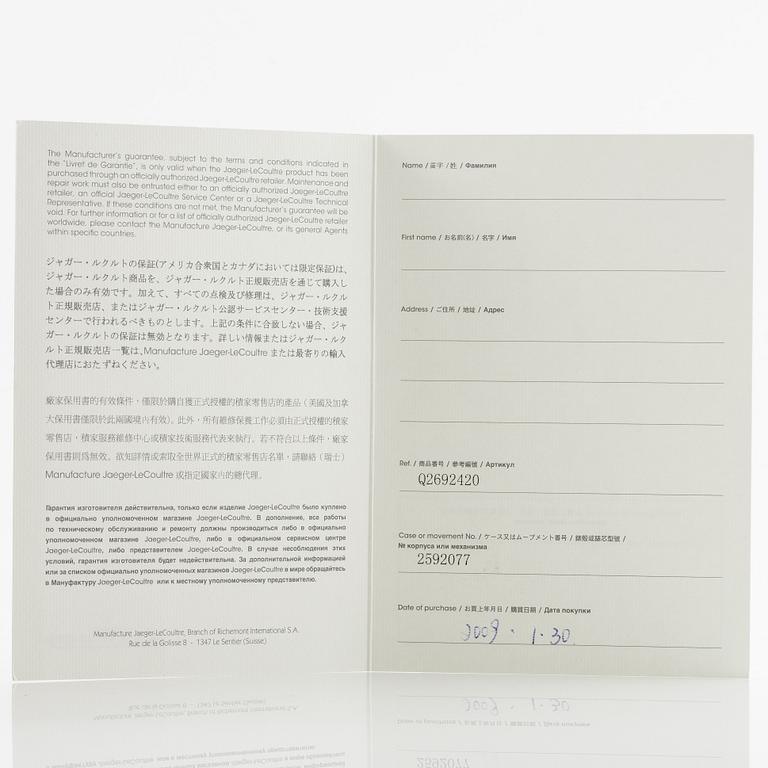 The Manufacturer's guarantee, subject to the terms and conditions indicated in
the "Livret de Garantie", is only valid when the Jaeger-LeCoultre product has been
purchased through an officially authorized Jaeger-LeCoultre retailer. Maintenance and
repair work must also be entrusted either to an officially authorized Jaeger-LeCoultre
retailer, an official Jaeger-LeCoultre Service Center or a Jaeger-LeCoultre Technical
Representative. If these conditions are not met, the Manufacturer's guarantee will be
void. For further information or for a list of officially authorized Jaeger-LeCoultre retailer
worldwide, please contact the Manufacture Jaeger-LeCoultre, or its general Agents
within specific countries.
ジャガー・ルクルトの保証(アメリカ合衆国とカナダにおいては限定保証)は、
ジャガー・ルクルト商品を、ジャガー・ルクルト正規販売店を通じて購入し
た場合のみ有効です。加えて、すべての点検及び修理は、ジャガー・ルクル
ト正規販売店、またはジャガー・ルクルト公認サービスセンター・技術支援
センターで行われるべきものとします。上記の条件に合致しない場合、ジャ
ガー・ルクルトの保証は無効となります。詳しい情報またはジャガー・ルク
ルト正規販売店一覧は、Manufacture Jaeger-LeCoultre または最寄りの輸入
代理店におたずねください。
廠家保用書的有效條件，僅限於購自獲正式授權的積家零售店的產品（美國及加拿
大保用書僅限於此兩國境內有效）。此外，所有維修保養工作必須由正式授權的積家
零售店，積家服務維修中心或積家技術服務代表來執行。若不符合以上條件，廠家
保用書則爲無效。欲知詳情或索取全世界正式的積家零售店名單，請聯絡（瑞士）
Manufacture Jaeger-LeCoultre 或指定國家內的總代理。
Гарантия изготовителя действительна, только если изделие Jaeger-LeCoultre было куплено
в официально уполномоченном магазине Jaeger-LeCoultre. В дополнение, все работы
по техническому обслуживанию и ремонту должны производиться либо в официально
уполномоченном магазине Jaeger-LeCoultre, либо в официальном сервисном центре
Jaeger-LeCoultre, либо представителем Jaeger-LeCoultre. В случае несоблюдения этих
условий, гарантия изготовителя будет недействительна. За дополнительной информацией
или за списком официально уполномоченных магазинов Jaeger-LeCoultre в мире обращайтесь
в Мануфактуру Jaeger-LeCoultre или к местному уполномоченному представителю.
Manufacture Jaeger-LeCoultre, Branch of Richemont International S.A.
Rue de la Golisse 8 - 1347 Le Sentier (Suisse)
Name / 苗字 / 姓 / Фамилия
First name / お名前(名) / 名字 / Имя
Address / ご住所 / 地址 / Адрес
Ref. / 商品番号 / 參考編號 / Артикул
Q2692420
Case or movement No. / ケース又はムーブメント番号 / 錶殼或錶芯型號 /
№ корпуса или механизма
2592077
Date of purchase / お買上年月日 / 購買日期 / Дата покупки
2009 . 1.30